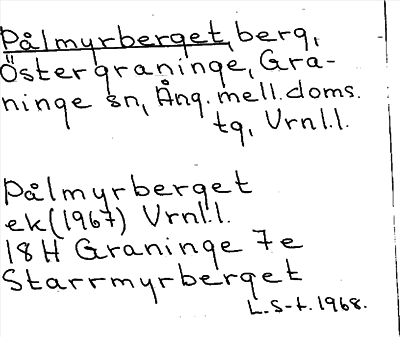 Pålmyrberget, berg,
Östergraninge, Gra-
ninge sn, Ång. mell. doms.
tg, Vrnl.l.
Pålmyrberget
ek (1967) Vrnl.l.
18H Graninge 7e
Starrmyrberget
L. S-t. 1968.